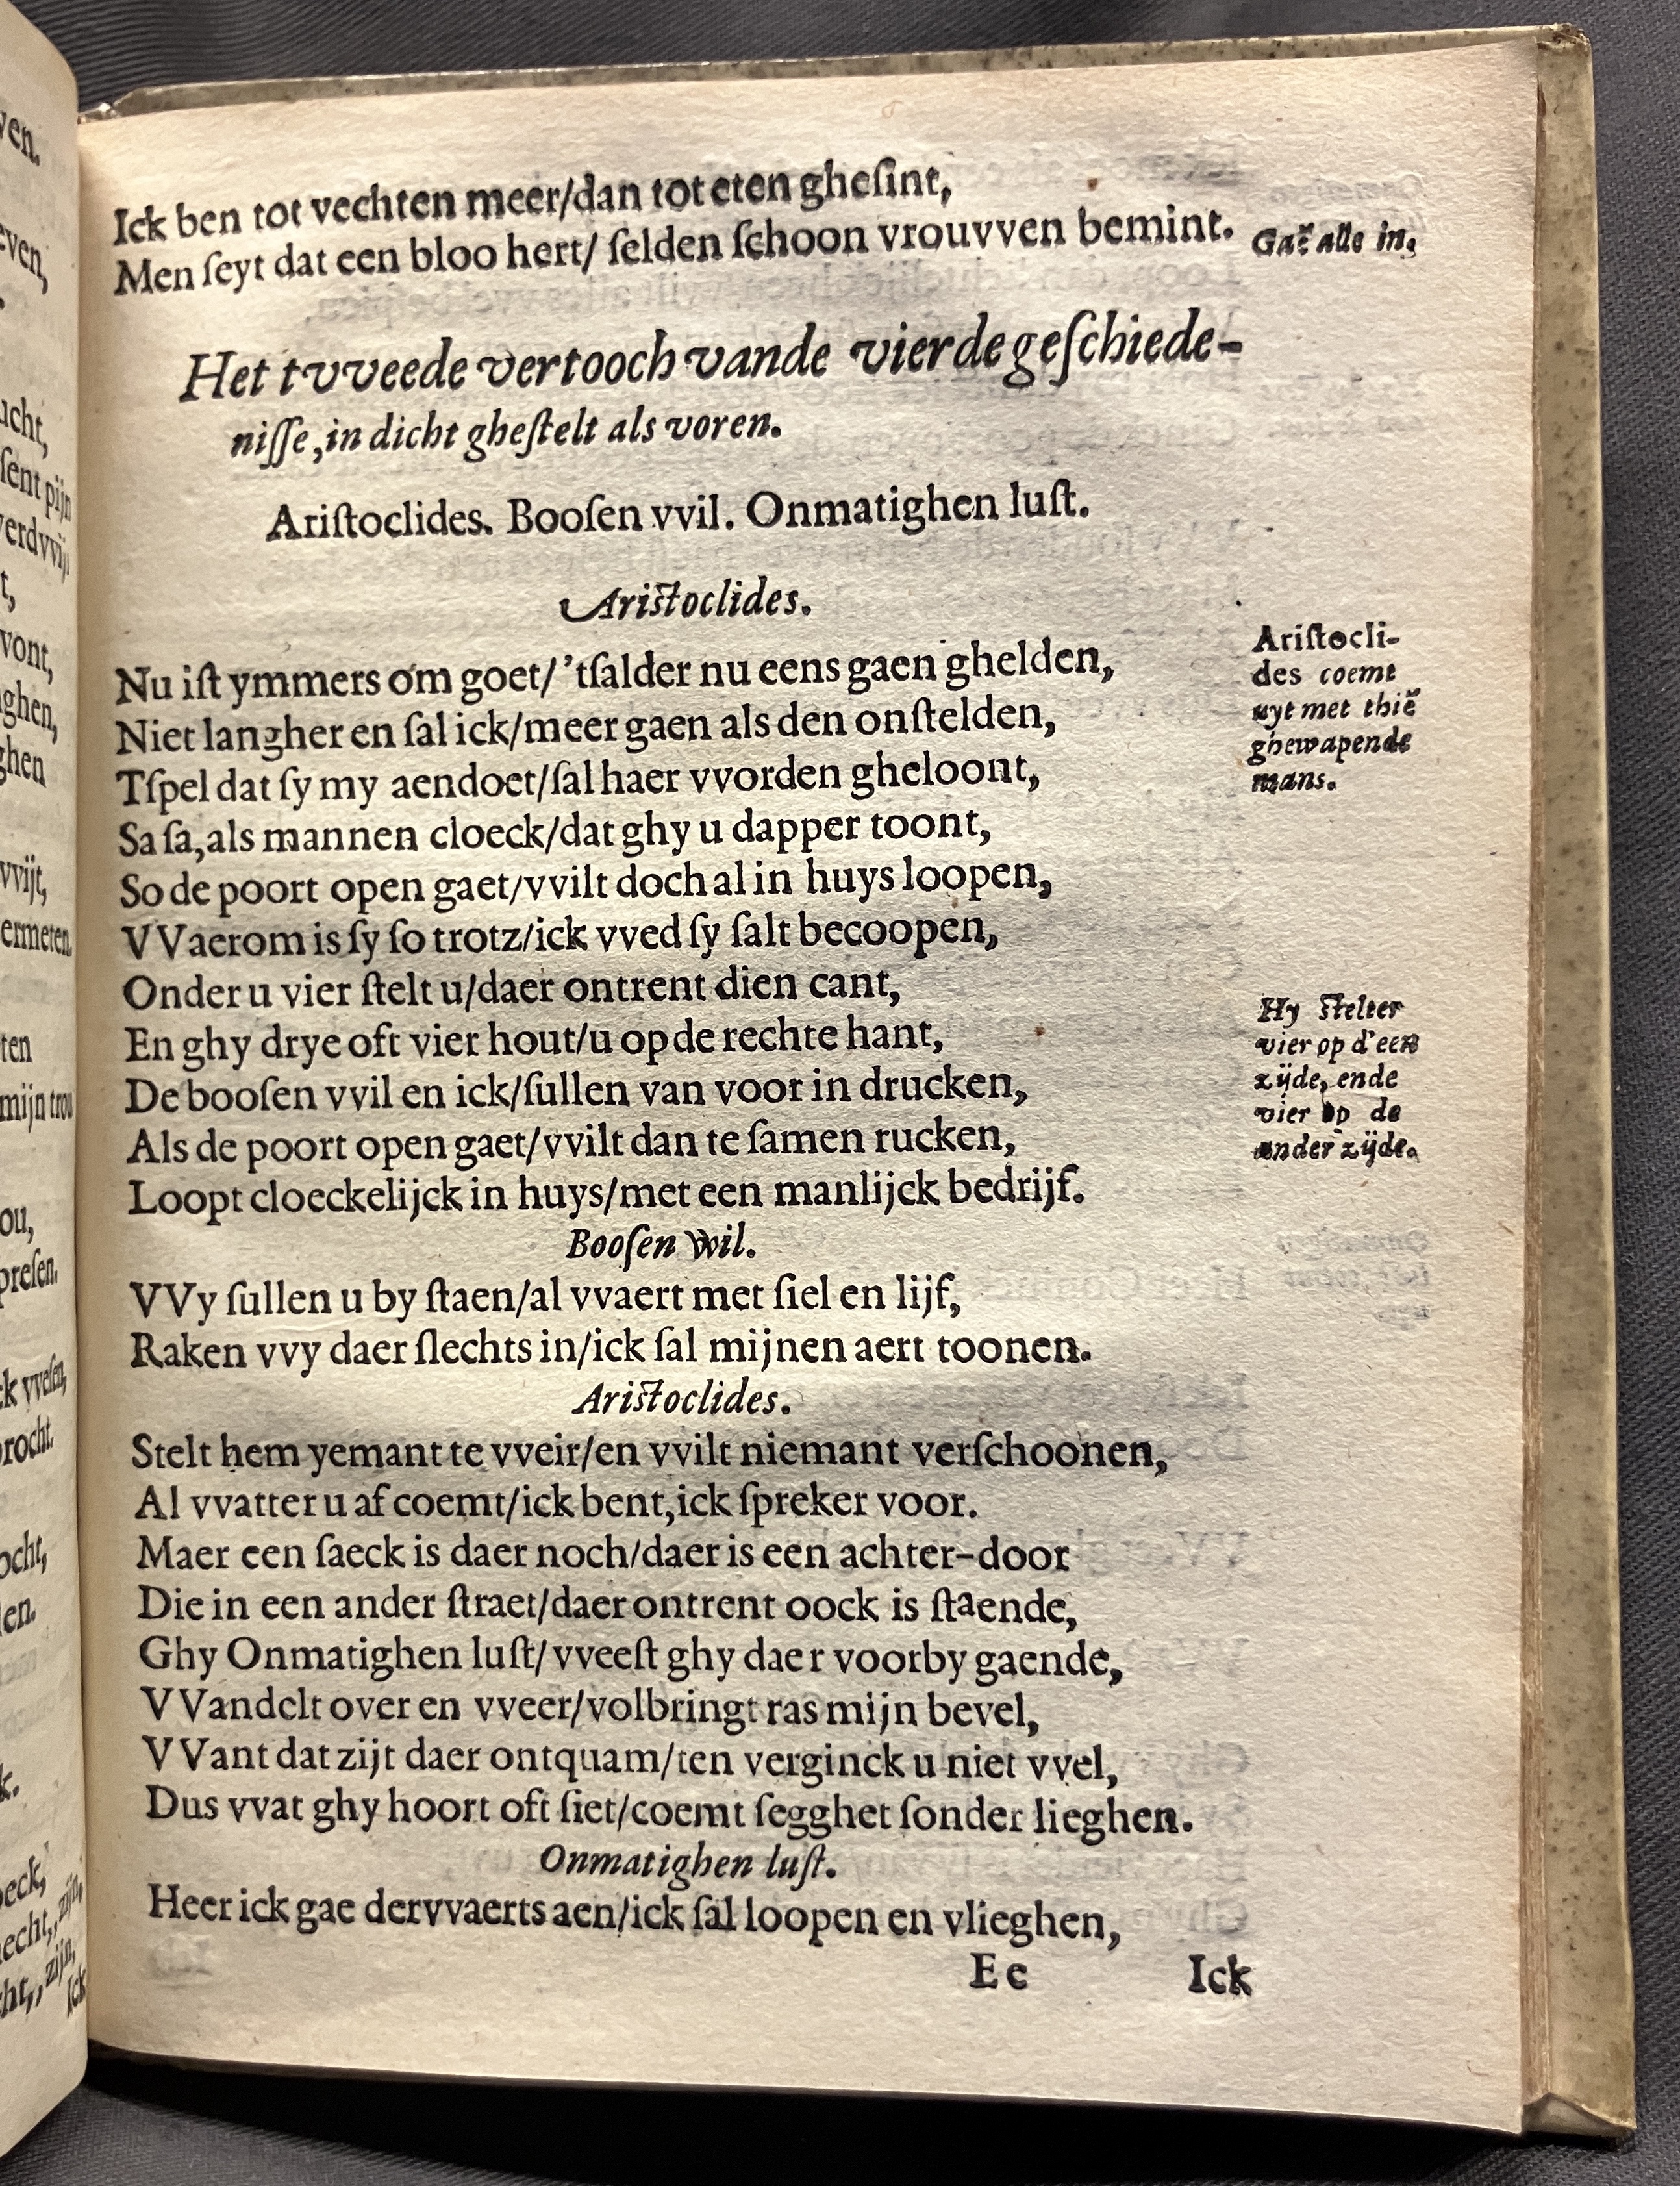 Ick ben tot vechten meer/dan tot eten gheſint,
Men ſeyt dat een bloo hert/ ſelden ſchoon vrouvven bemint.
Gaẽ alle in.
Het tvveede vertooch vande vierde geſchiede-
niſſe, in dicht gheſtelt als voren.
Ariſtoclides. Booſen vvil. Onmatighen luſt.
Ariſtoclides.
Nu iſt ymmers om goet/ ’tſalder nu eens gaen ghelden,
Niet langher en ſal ick/meer gaen als den onſtelden,
Tſpel dat ſy my aendoet/ſal haer vvorden gheloont,
Sa ſa, als mannen cloeck/dat ghy u dapper toont,
So de poort open gaet/vvilt doch al in huys loopen,
VVaerom is ſy ſo trotz/ick vved ſy ſalt becoopen,
Onder u vier ſtelt u/daer ontrent dien cant,
En ghy drye oft vier hout/u op de rechte hant,
De booſen vvil en ick/ſullen van voor in drucken,
Als de poort open gaet/vvilt dan te ſamen rucken,
Loopt cloeckelijck in huys/met een manlijck bedrijf.
Ariſtocli-
des coemt
uyt met thiẽ
ghewapende
mans.
Hy ſtelter
vier op d'een
zijde, ende
vier op de
ander zijde.
Booſen Wil.
VVy ſullen u by ſtaen/al vvaert met ſiel en lijf,
Raken vvy daer ſlechts in/ick ſal mijnen aert toonen.
Ariſtoclides.
Stelt hem yemant te vveir/en vvilt niemant verſchoonen,
Al vvatter u af coemt/ick bent, ick ſpreker voor.
Maer een ſaeck is daer noch/daer is een achter-door
Die in een ander ſtraet/daer ontrent oock is ſtaende,
Ghy Onmatighen luſt/ vveeſt ghy daer voorby gaende,
VVandelt over en vveer/volbringt ras mijn bevel,
VVant dat zijt daer ontquam/ten verginck u niet vvel,
Dus vvat ghy hoort oft ſiet/coemt ſegghet ſonder lieghen.
Onmatighen luſt.
Heer ick gae dervvaerts aen/ick ſal loopen en vlieghen,
Ee Ick